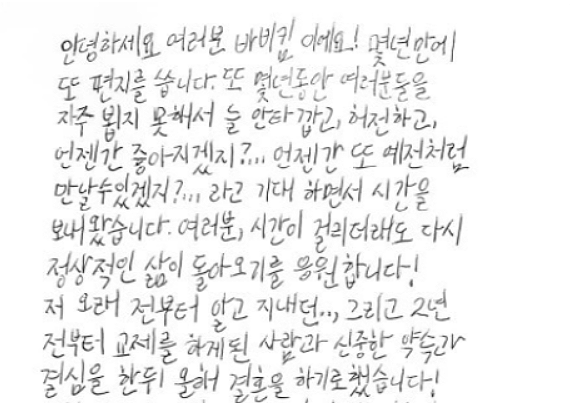 안녕하세요 여러분 바비킴 이에요! 몇년만에
또 편지를 씁니다. 또 몇년동안 여러분들을
자주 뵙지 못해서 늘 안타깝고, 허전하고,
언젠간 좋아지겠지?... 언젠간 또 예전처럼
만날수있겠지?... 라고 기대 하면서 시간을
보내왔습니다. 여러분, 시간이 걸리더래도 다시
정상적인 삶이 돌아오기를 응원합니다!
저 오래 전부터 알고 지내던..., 그리고 2년
전부터 교제를 하게된 사람과 신중한 약속과
결심을 한뒤 올해 결혼을 하기로했습니다!